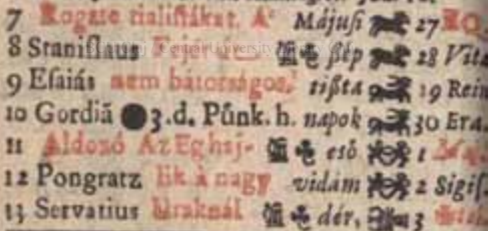 7 Rogate rialiſtákat. A' Májuſi 27
8 Staniſlaus Fejér ßép 28 Vita
9 Eſaiás nem bátorságos. tißta 19 Rein
10 Gordiã ● 3. d. Pűnk. h. napok 30 Era.
11 Aldozó Az Eg haj- eső 1
12 Pongratz lik à nagy vidám 2 Sigiſ.
13 Servatius Uraknál dér, 3